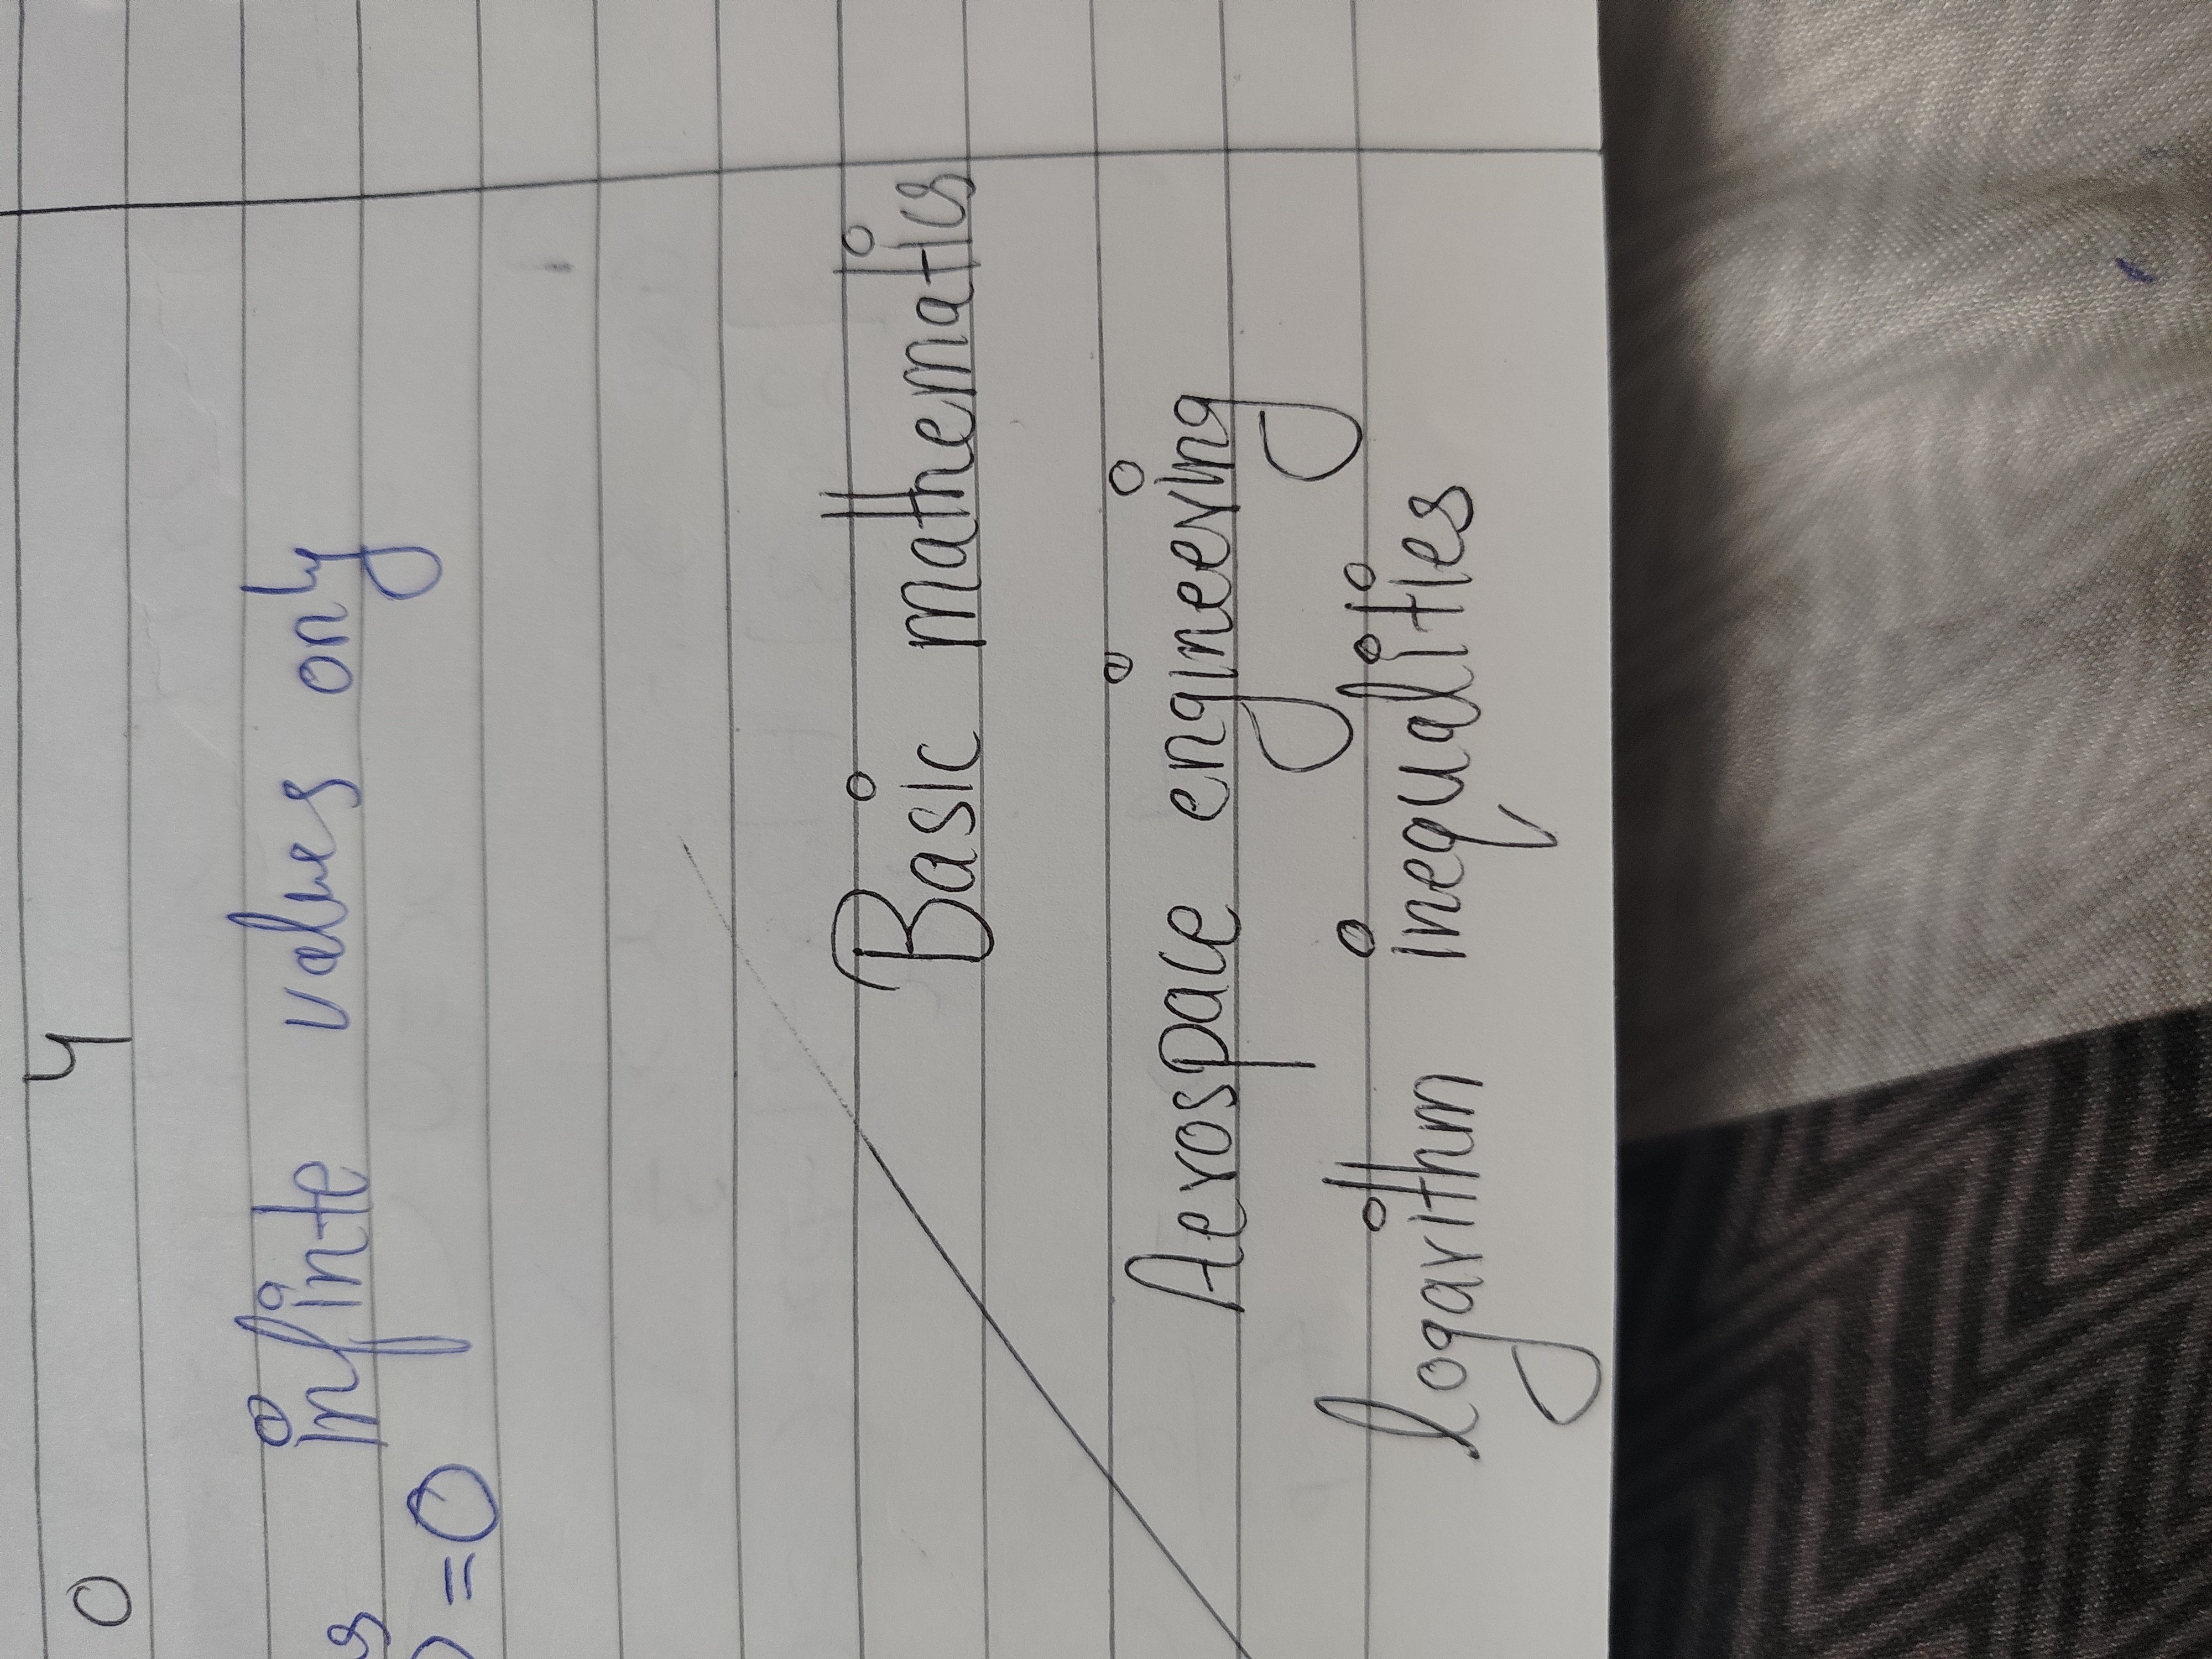 0 4
s infinte values only
) = 0
Basic mathematics
Aerospace engineering
logarithm inequalities